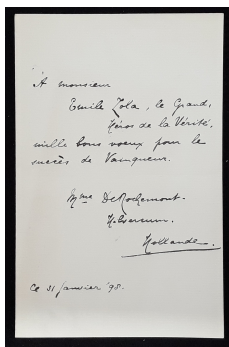 A monsieur
Emile Zola, le Grand,
Héros de la Vérité,
mille bons voeux pour le
succès de Vainqueur.
Mme De Rochemont.
Hilversum.
Hollande.
Ce 31 janvier '98.